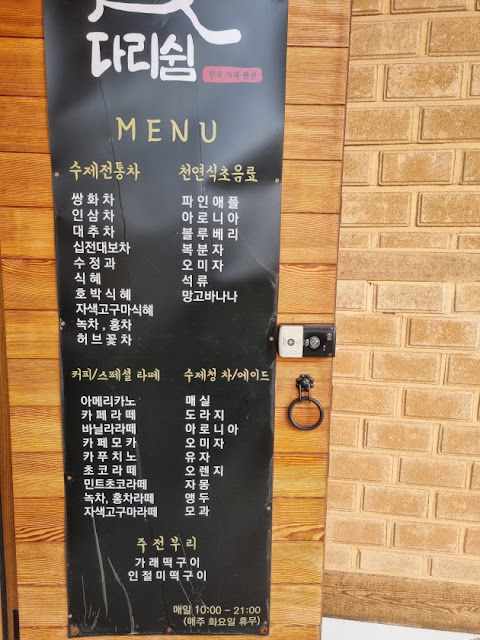 다리쉼
한옥 카페 펜션
MENU
수제전통차
쌍화차
인삼차
대추차
십전대보차
수정과
식혜
호박식혜
자색고구마식혜
녹차, 홍차
허브꽃차
천연식초음료
파인애플
아로니아
블루베리
복분자
오미자
석류
망고바나나
커피/스페셜 라떼
아메리카노
카페라떼
바닐라라떼
카페모카
카푸치노
초코라떼
민트초코라떼
녹차, 홍차라떼
자색고구마라떼
수제청 차/에이드
매실
도라지
아로니아
오미자
유자
오렌지
자몽
앵두
모과
주전부리
가래떡구이
인절미떡구이
매일 10:00 - 21:00
(매주 화요일 휴무)